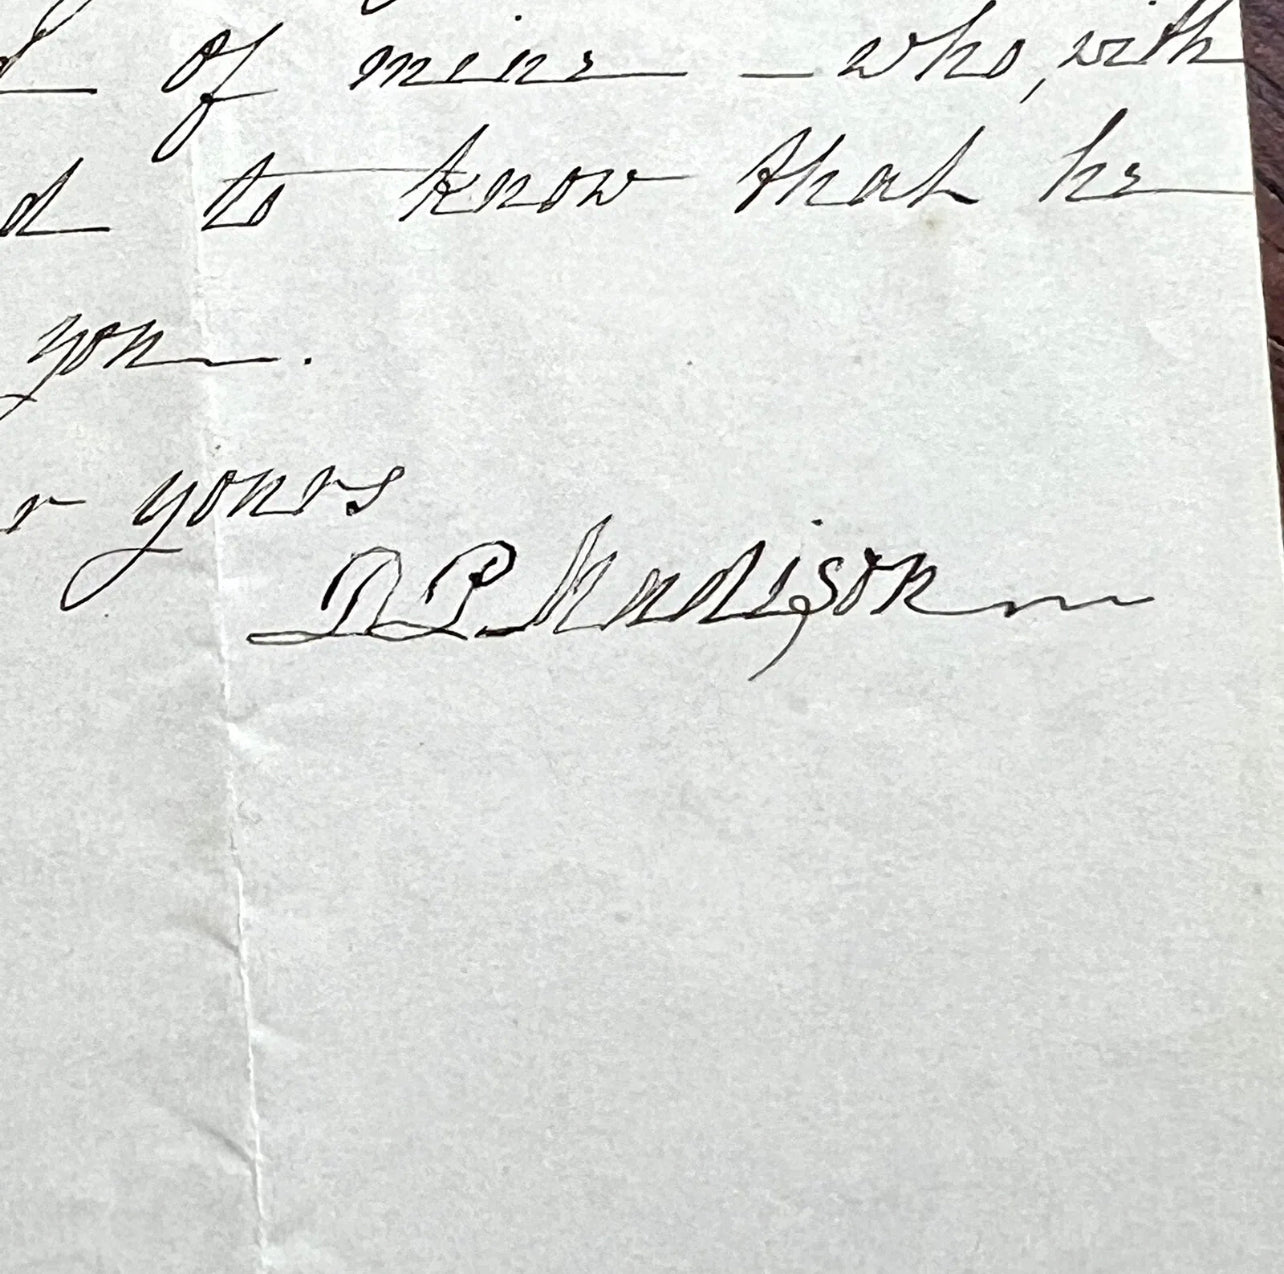 d of mine — who, with
d to know that he
you.
r yours
D P Madison